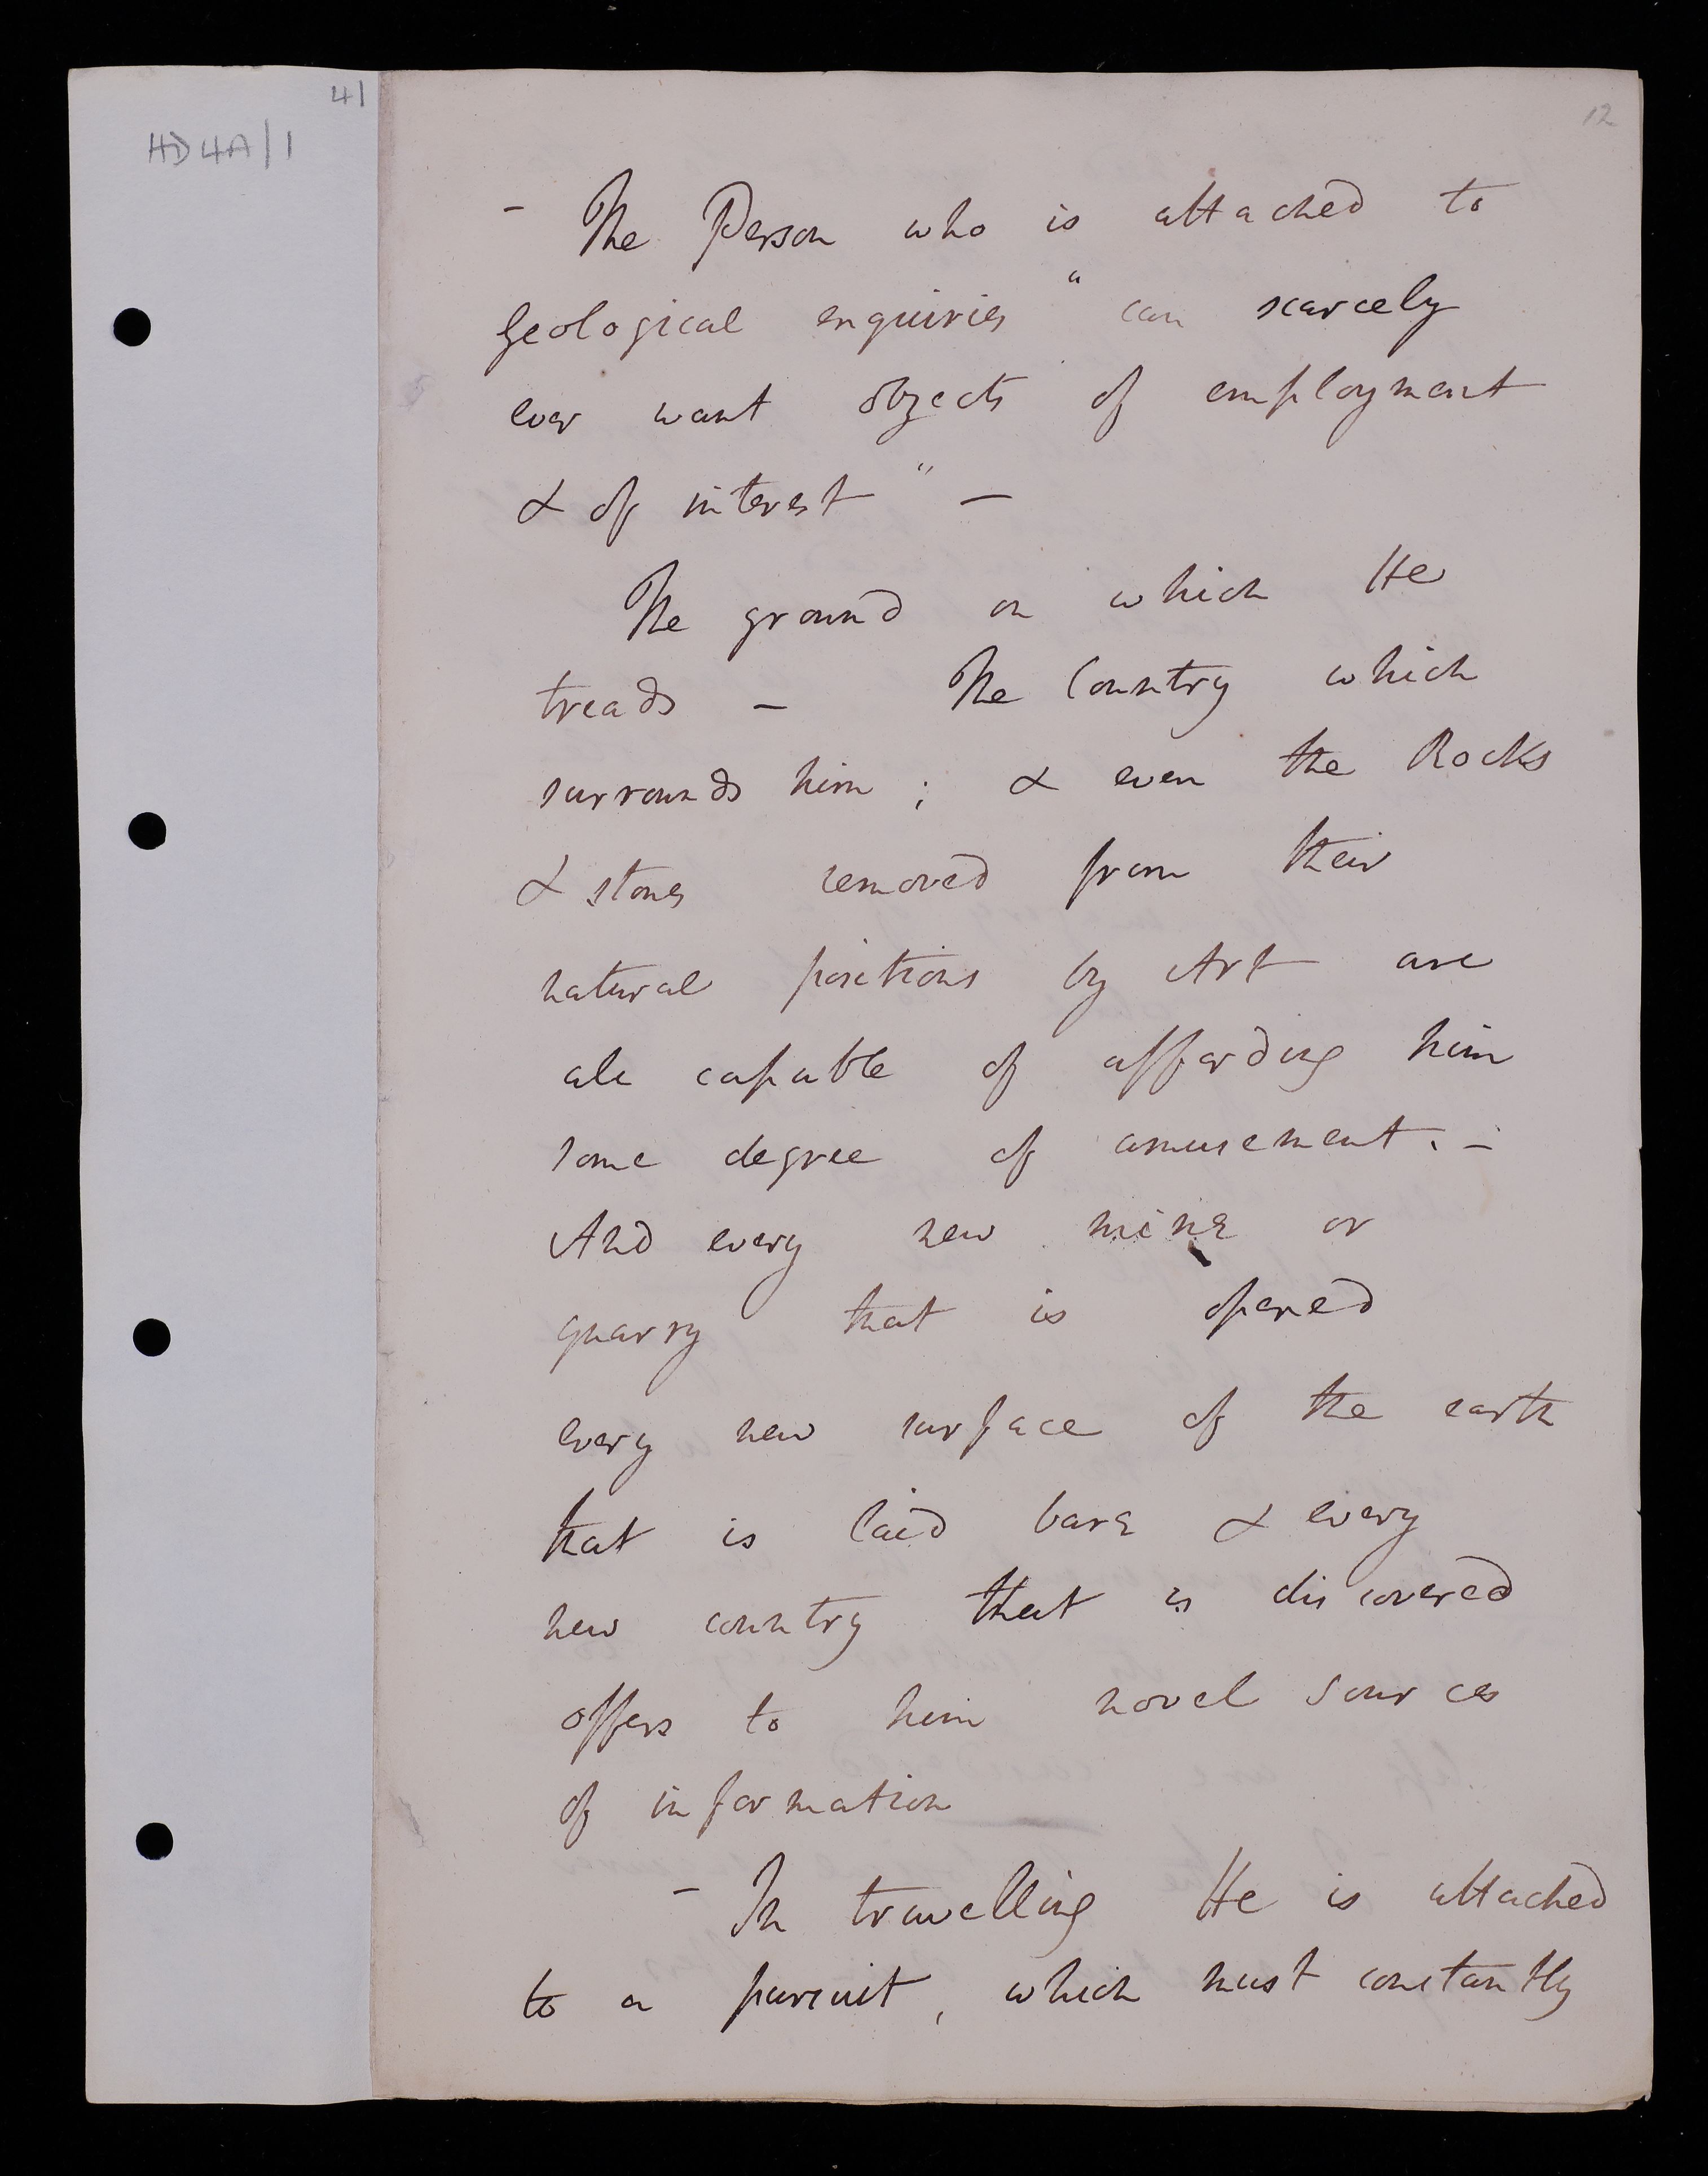 41
HD4A/1
12
- The Person who is attached to
Geological enquiries " can scarcely
ever want objects of employment
& of interest " —
The ground on which He
treads — The Country which
surrounds him ; & even the Rocks
& stones removed from their
natural positions by Art are
all capable of affording him
some degree of amusement. -
And every new mine or
quarry that is opened
every new surface of the earth
that is laid bare & every
new country that is discovered
offers to him novel sources
of information —
- In travelling He is attached
to a pursuit, which must constantly